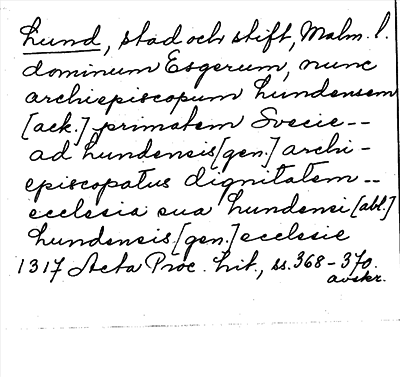 Lund, stad och stift, Malm. l.
dominum Esgerum, nunc
archiepiscopum Lundensem
[ack.] primatem Svecie --
ad Lundensis [gen.] archi-
episcopatus dignitatem --
ecclesia sua Lundensi [abl.]
Lundensis [gen.] ecclesie
1317 Acta Proc. Lit., ss. 368-370.
avskr.